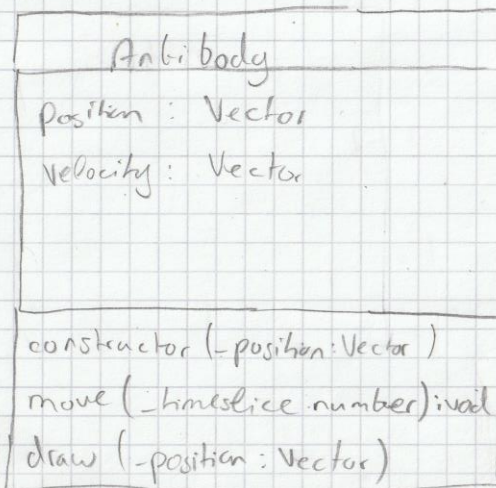 Antibody
position : Vector
velocity : Vector
constructor (_position : Vector)
move (_timeslice number) : void
draw (_position : Vector)